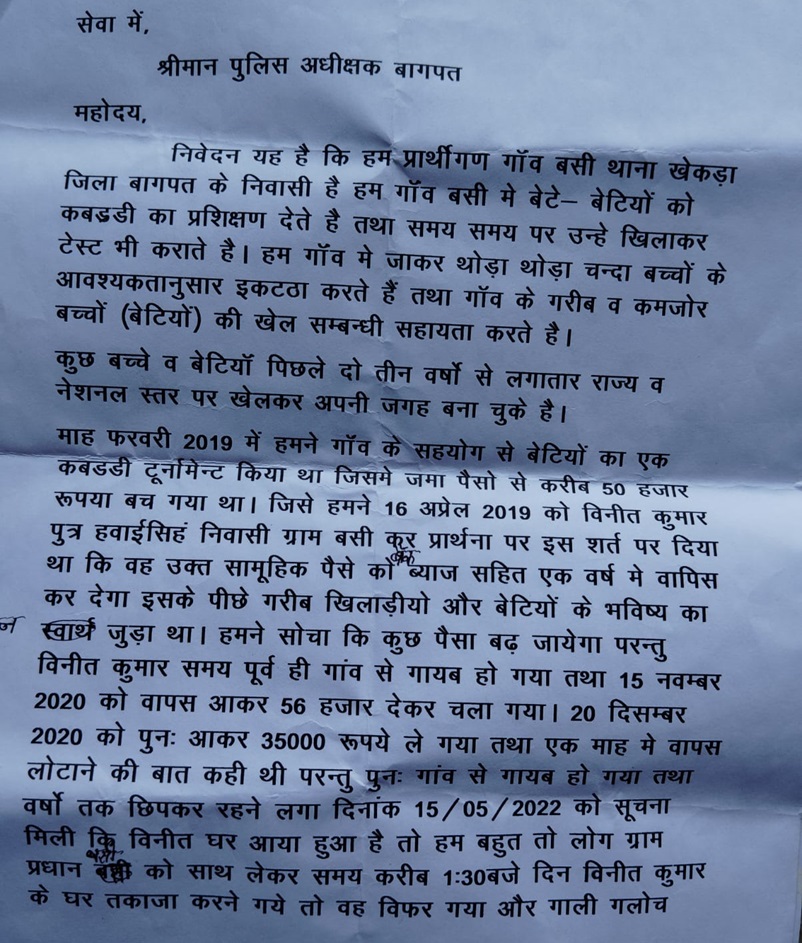 सेवा में,
श्रीमान पुलिस अधीक्षक बागपत
महोदय,
निवेदन यह है कि हम प्रार्थीगण गॉव बसी थाना खेकड़ा
जिला बागपत के निवासी है हम गॉव बसी मे बेटे– बेटियों को
कबडडी का प्रशिक्षण देते है तथा समय समय पर उन्हे खिलाकर
टेस्ट भी कराते है। हम गॉव मे जाकर थोड़ा थोड़ा चन्दा बच्चों के
आवश्यकतानुसार इकटठा करते हैं तथा गॉव के गरीब व कमजोर
बच्चों (बेटियों) की खेल सम्बन्धी सहायता करते है।
कुछ बच्चे व बेटियॉ पिछले दो तीन वर्षो से लगातार राज्य व
नेशनल स्तर पर खेलकर अपनी जगह बना चुके है।
माह फरवरी 2019 में हमने गॉव के सहयोग से बेटियों का एक
कबडडी टूर्नामेन्ट किया था जिसमे जमा पैसो से करीब 50 हजार
रूपया बच गया था। जिसे हमने 16 अप्रेल 2019 को विनीत कुमार
पुत्र हवाईसिहं निवासी ग्राम बसी प्रार्थना पर इस शर्त पर दिया
था कि वह उक्त सामूहिक पैसे को ब्याज सहित एक वर्ष मे वापिस
कर देगा इसके पीछे गरीब खिलाड़ीयो और बेटियों के भविष्य का
स्वार्थ जुड़ा था। हमने सोचा कि कुछ पैसा बढ़ जायेगा परन्तु
विनीत कुमार समय पूर्व ही गांव से गायब हो गया तथा 15 नवम्बर
2020 को वापस आकर 56 हजार देकर चला गया। 20 दिसम्बर
2020 को पुनः आकर 35000 रूपये ले गया तथा एक माह मे वापस
लोटाने की बात कही थी परन्तु पुनः गांव से गायब हो गया तथा
वर्षो तक छिपकर रहने लगा दिनांक 15/05/2022 को सूचना
मिली कि विनीत घर आया हुआ है तो हम बहुत तो लोग ग्राम
प्रधान को साथ लेकर समय करीब 1:30बजे दिन विनीत कुमार
के घर तकाजा करने गये तो वह विफर गया और गाली गलोच